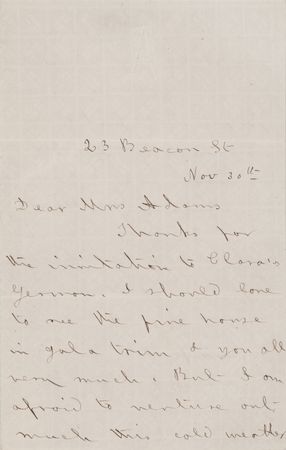 23 Beacon St
Nov 30th
Dear Mrs Adams
Thanks for
the invitation to Clara's
German. I should love
to see the fine house
in gala trim & you all
very much. But I am
afraid to venture out
much this cold weather